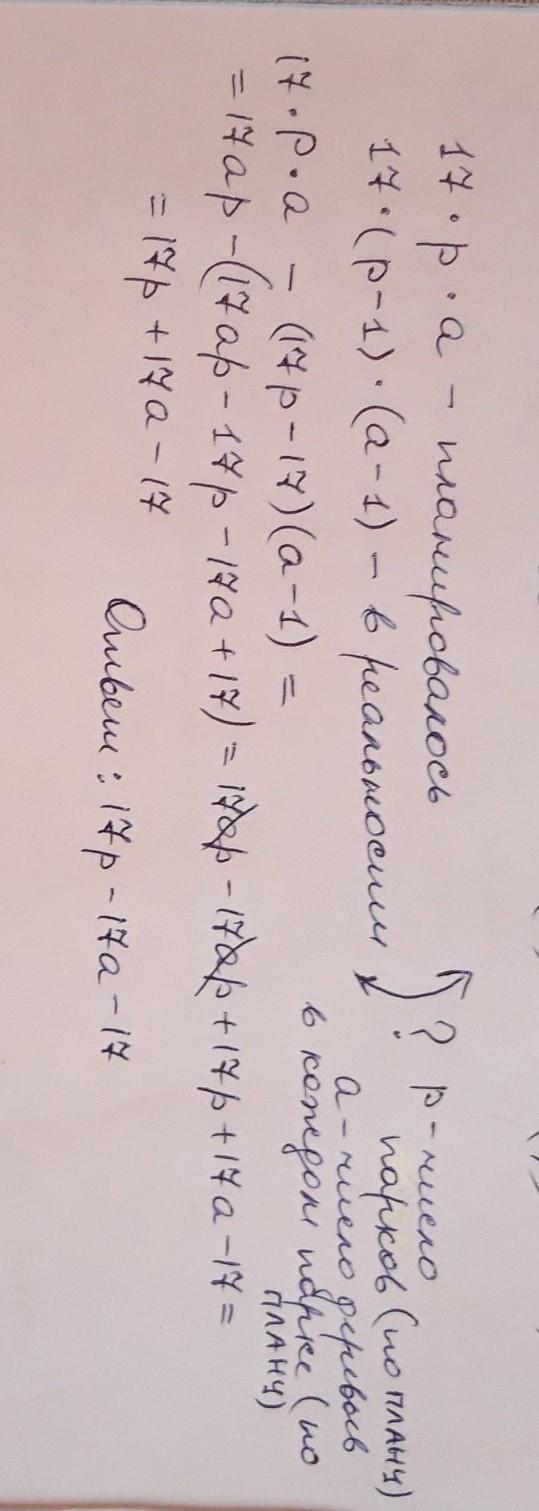 17 · p · a – планировалось
17 · (p – 1) · (a – 1) – в реальности
?
p – число
парков (по плану)
a – число деревьев
в каждом парке (по
плану)
17 · p · a – (17p – 17)(a – 1) =
= 17ap – (17ap – 17p – 17a + 17) = 17ap – 17ap + 17p + 17a – 17 =
= 17p + 17a – 17
Ответ: 17p – 17a – 17